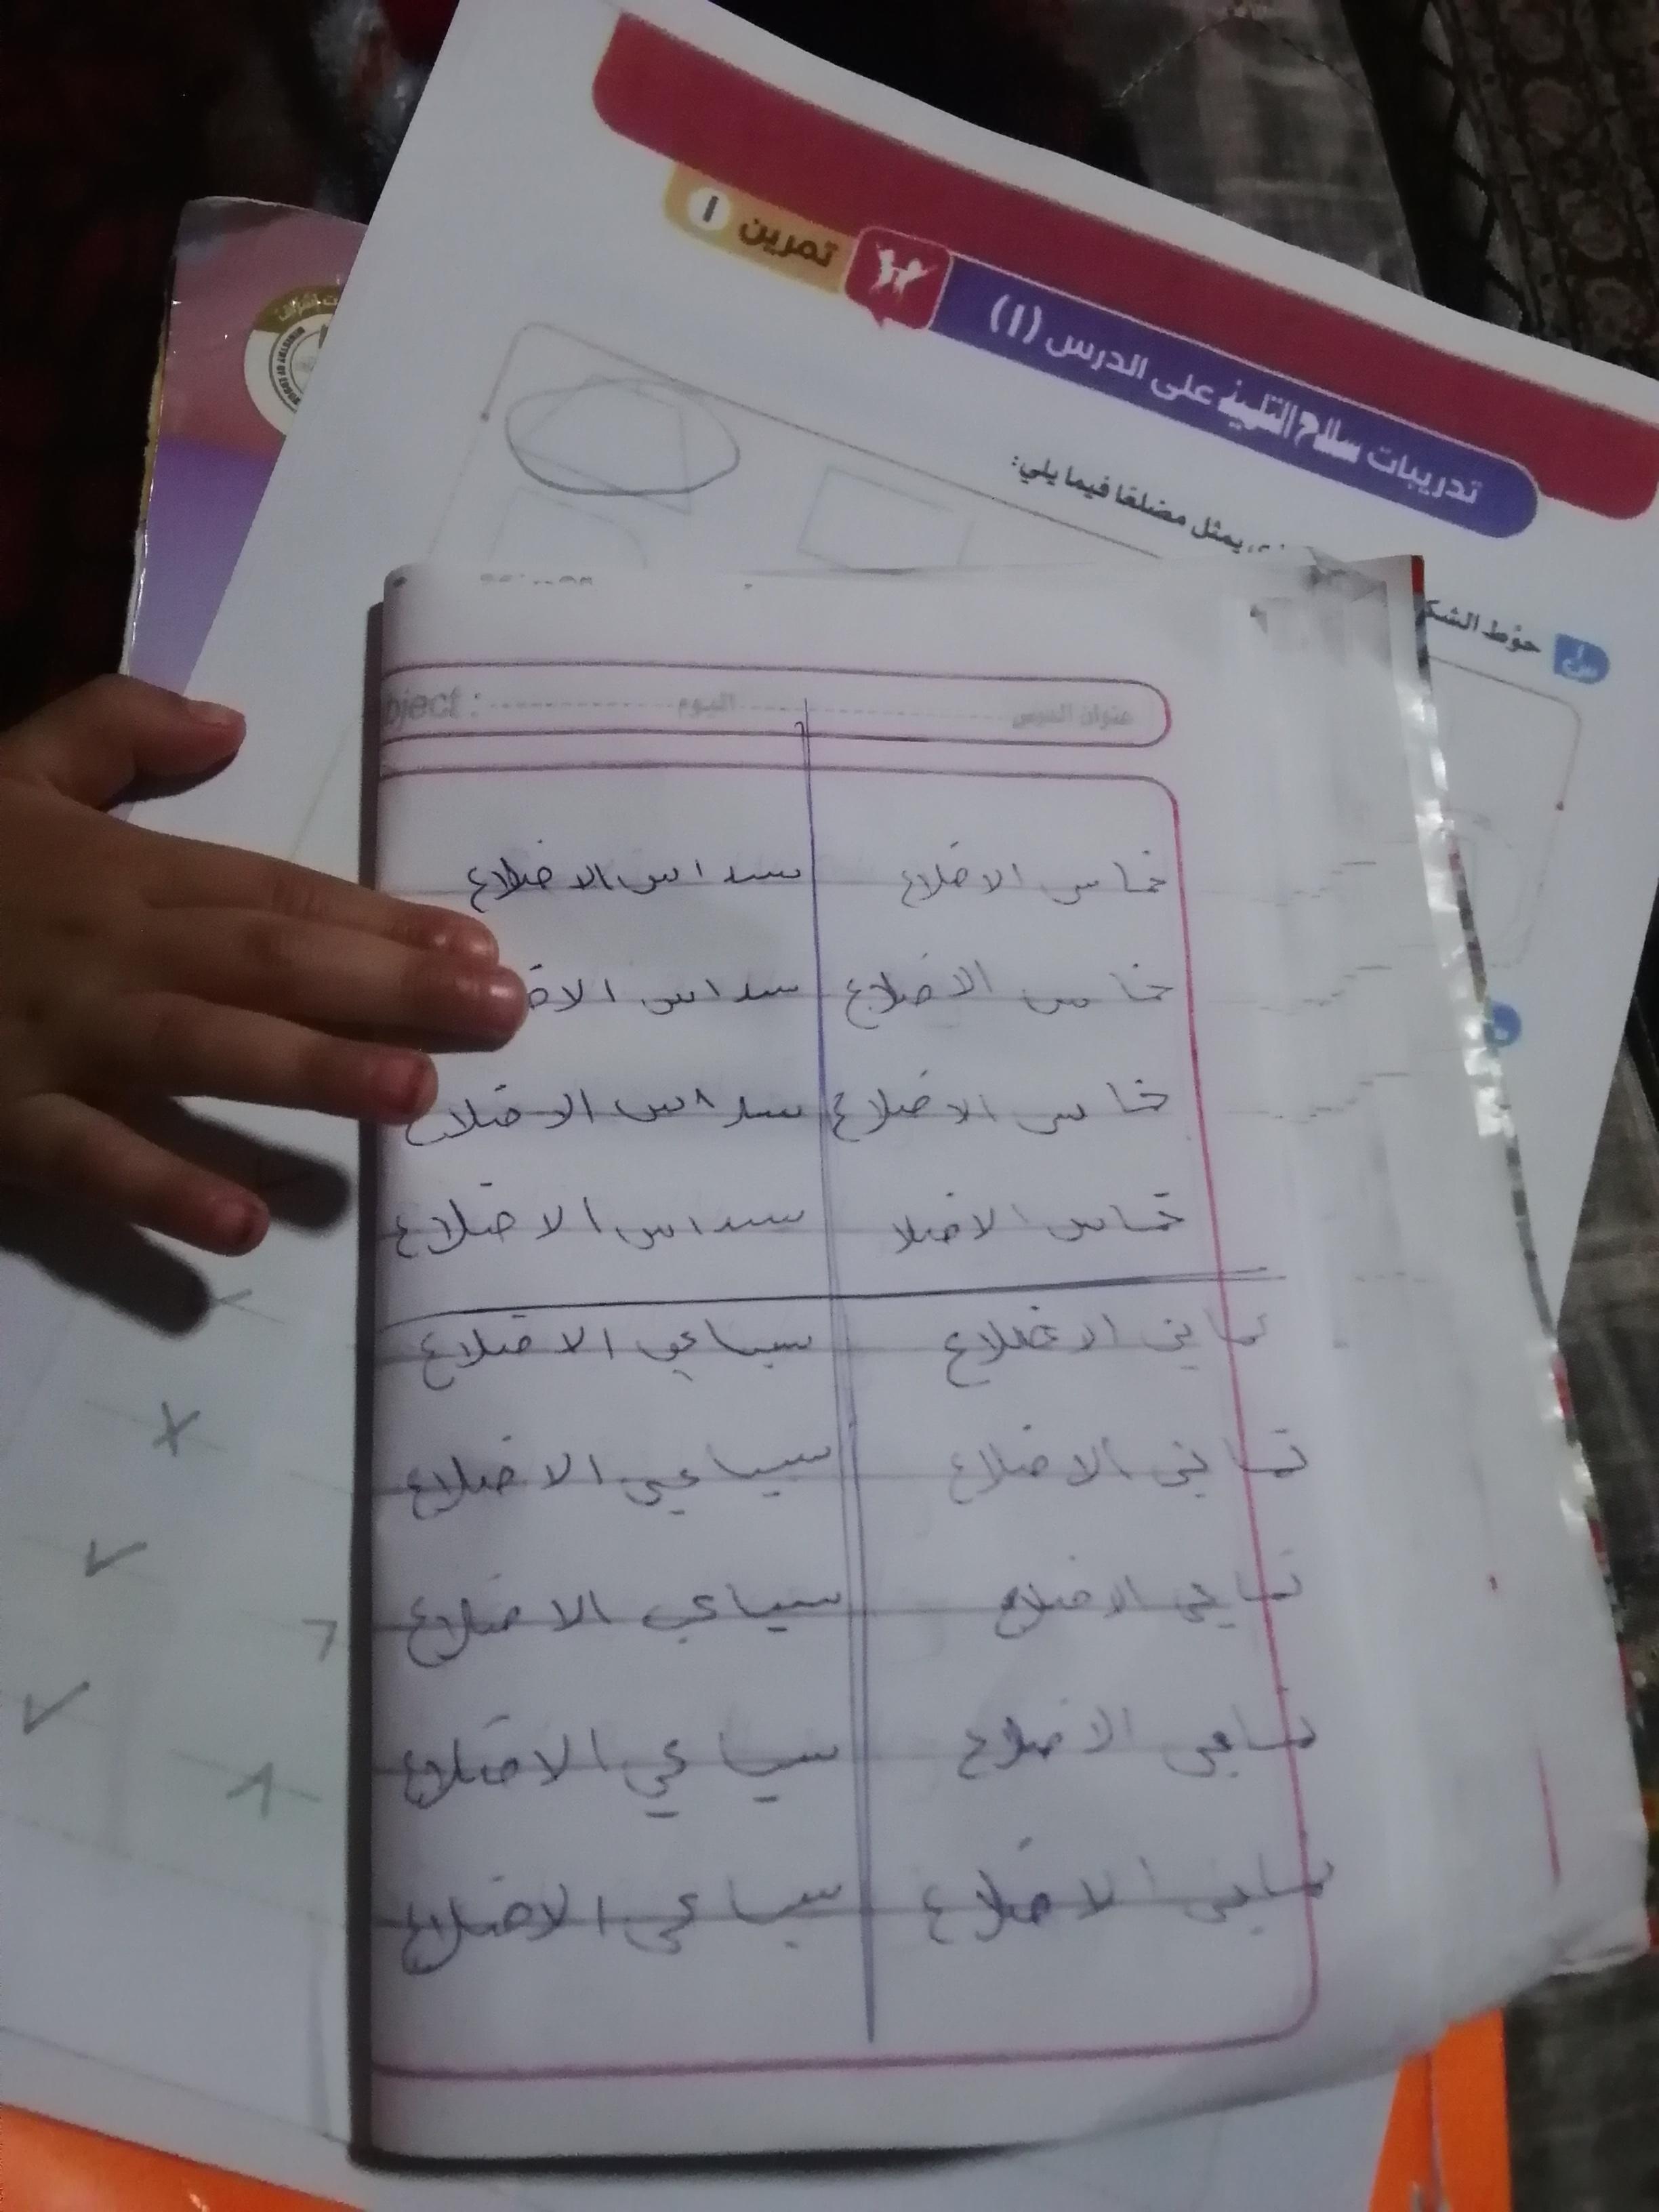 تمرين ١
تدريبات سلاح التلميذ على الدرس (١)
حوّط الشك
يمثل مضلعًا فيما يلي:
bject : اليوم عنوان الدرس
خماس الاضلاع سداس الاضلاع
خماس الاضلاع سداس الاض
خماس الاضلاع سداس الاضلاع
خماس الاضلا سداس الاضلاع
ثماني الاضلاع سباعي الاضلاع
ثماني الاضلاع سباعي الاضلاع
ثماني الاضلاع سباعي الاضلاع
ثماني الاضلاع سباعي الاضلاع
ثماني الاضلاع سباعي الاضلاع